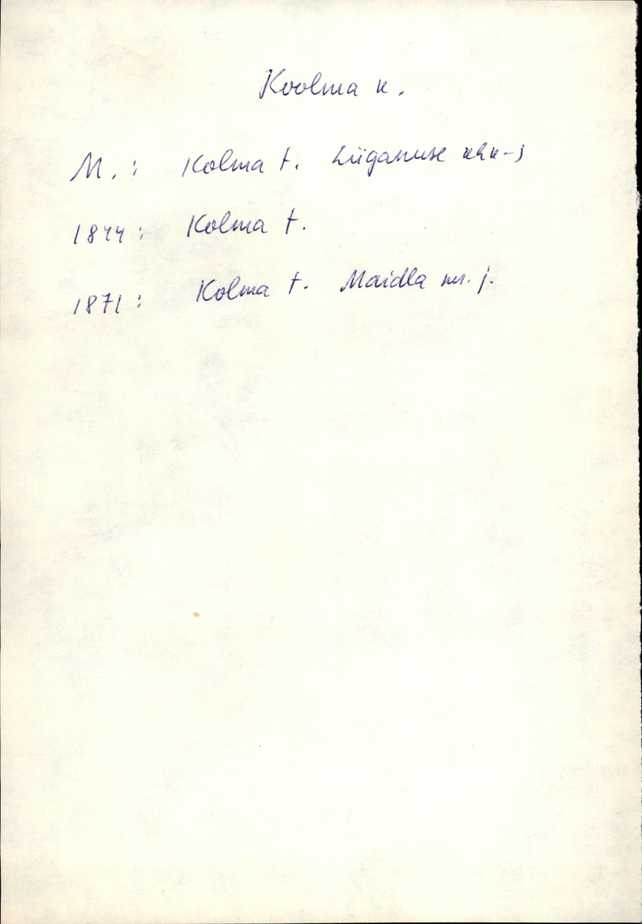 Koolma k.
M. : Kolma t. Lüganuse khk-s
1844 : Kolma t.
1871 : Kolma t. Maidla m. j.